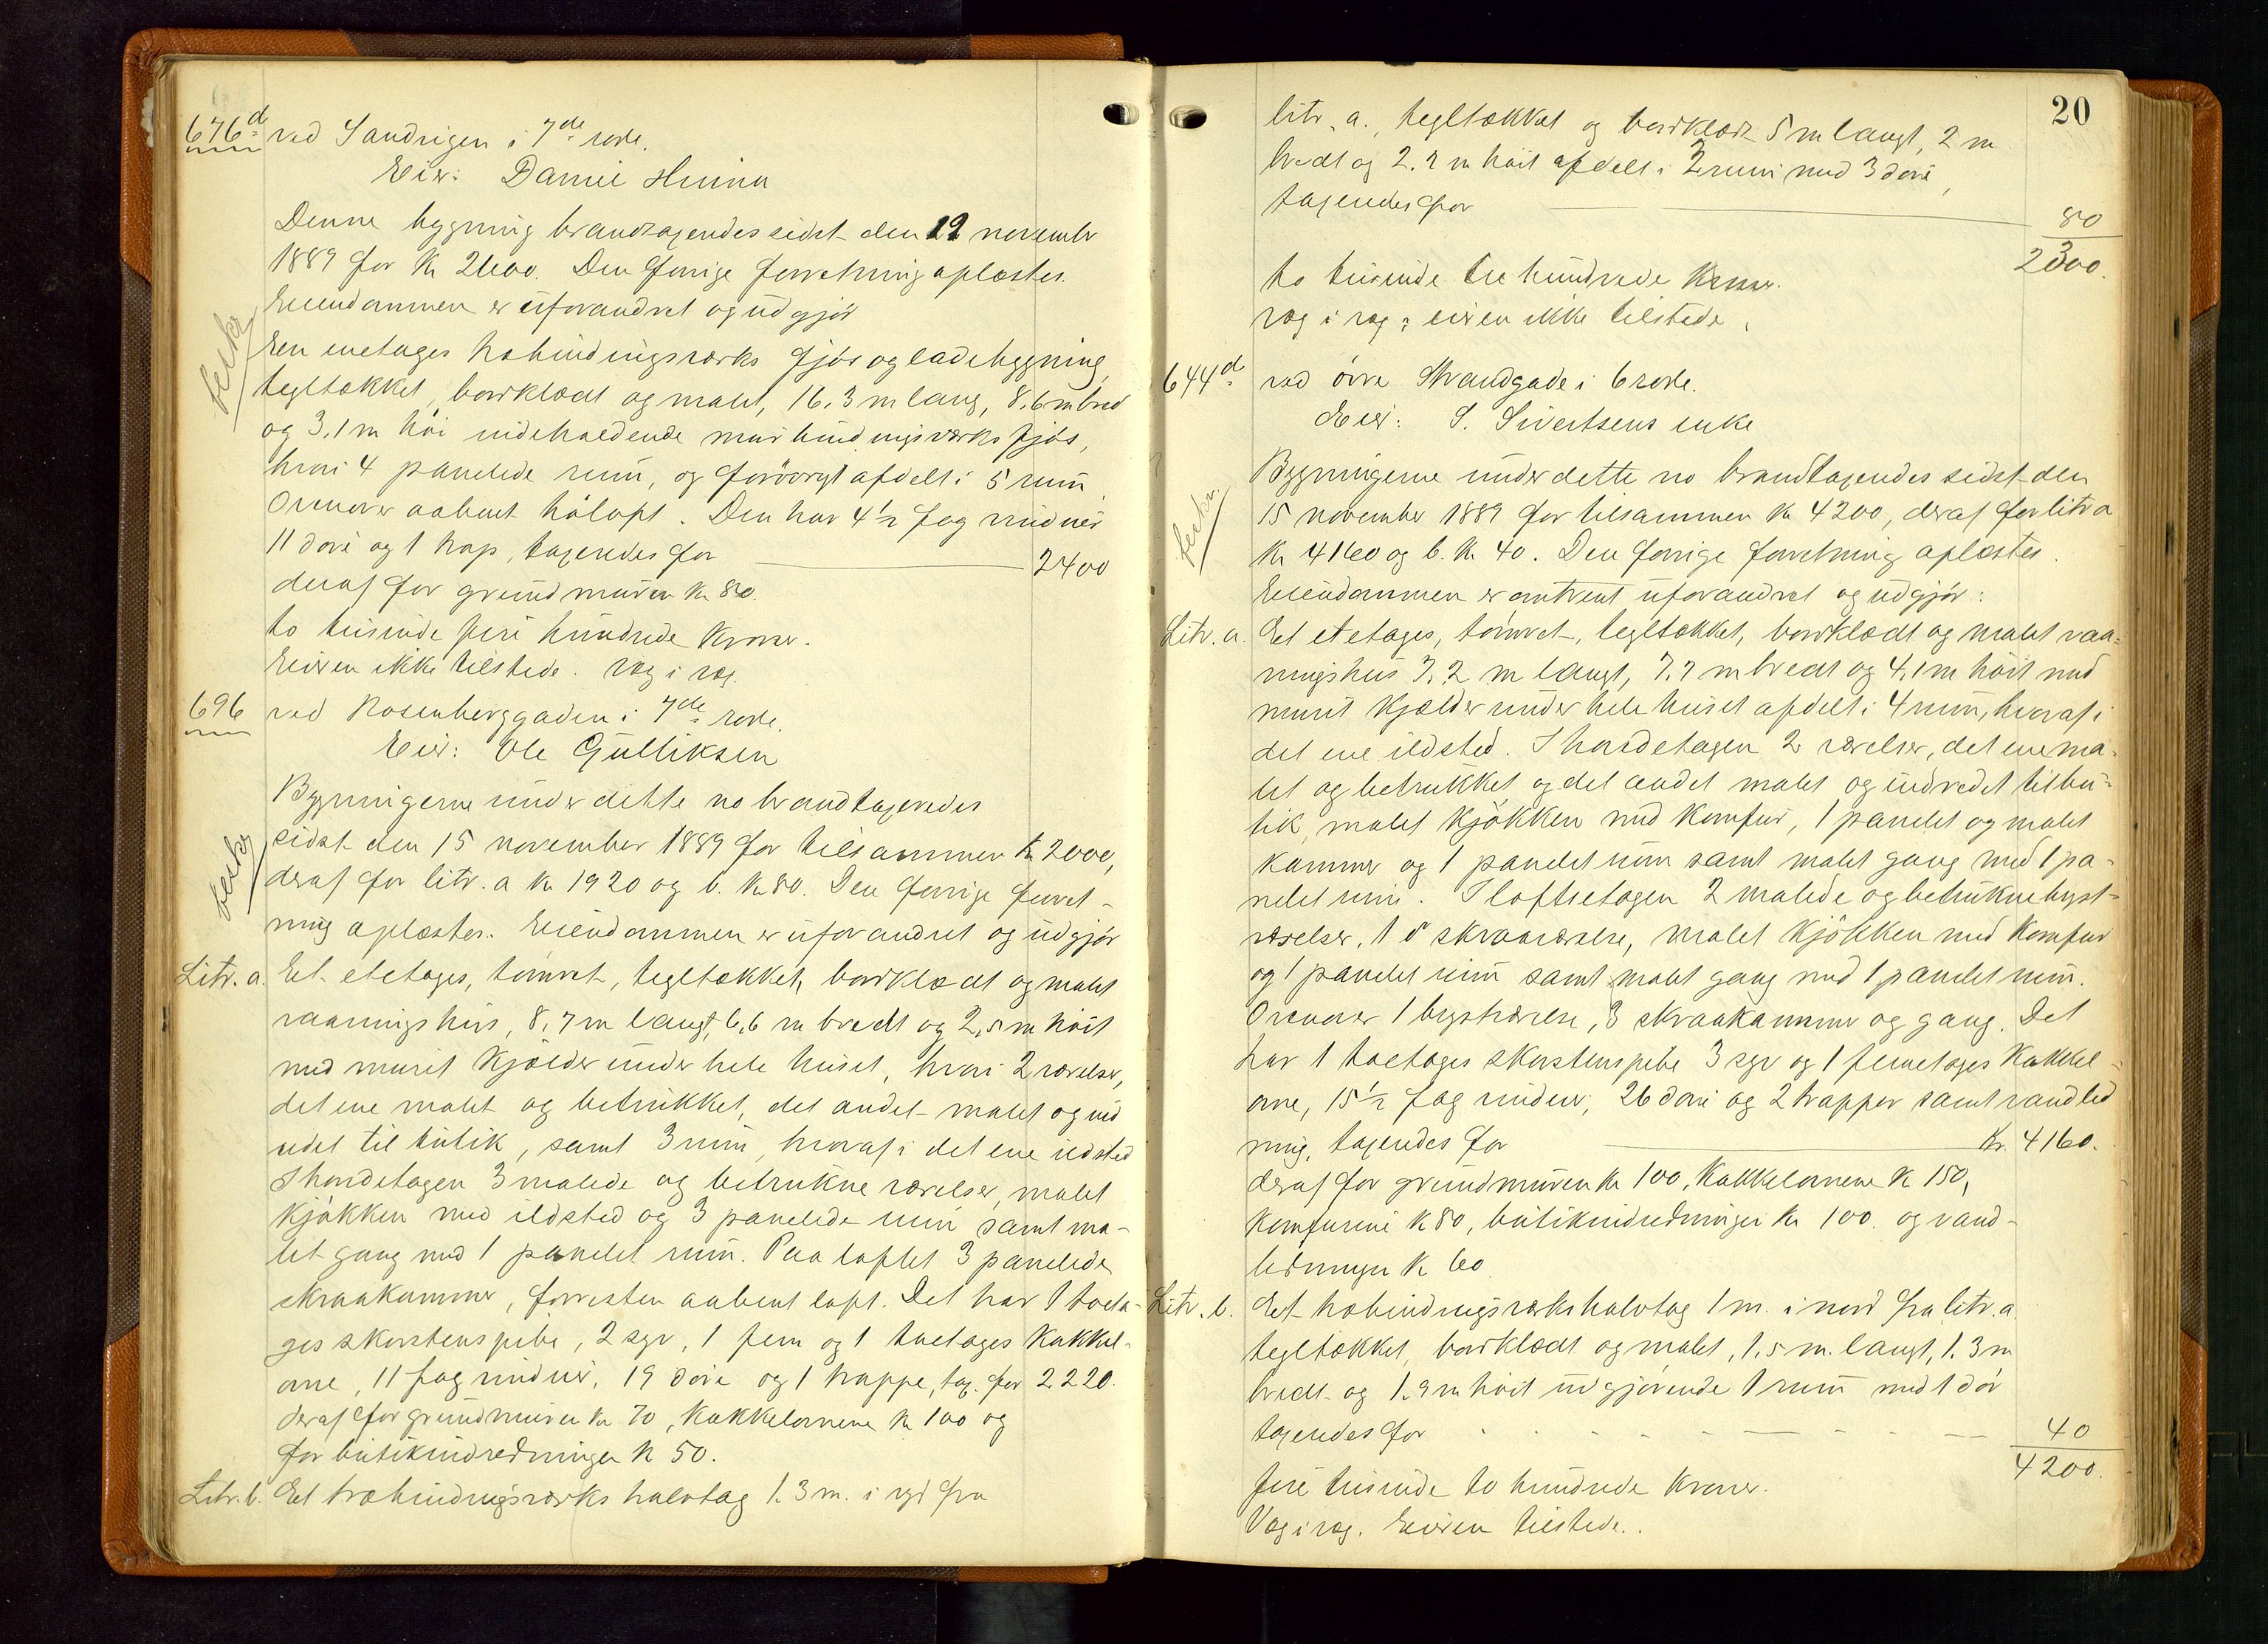 676d ved Sandvigen i 7de rode.
Eier: Daniel Hinna
Denne bygning brandtaxeredes sidst den 12 november
1889 for Kr 2600. Den forrige forretning oplæstes.
Eiendommen er uforandret og udgjør
En enetages træbindingsværks fjøs og ladebygning,
tegltækket, bordklædt og malet, 16.3 m lang, 8.6 m bred
og 3.1 m høi indeholdende mur bindingsværks fjøs,
hvori 4 panelede rum, og forøvrigt afdelt i 5 rum
Ovenover aabent høloft. Den har 4 1/2 fag vinduer
11 døre og 1 trap, taxeredes for 2400
deraf for grundmuren Kr 80.
to tusinde fire hundrede Kroner.
Eieren ikke tilstede. Væg i væg.
696 ved Rosenberggaden i 7de rode.
Eier: Ole Gulliksen
Bygningerne under dette no brandtaxeredes
sidst den 15 november 1889 for tilsammen Kr 2000,
deraf for litr. a Kr 1920 og b. Kr 80. Den forrige forret-
ning oplæstes. Eiendommen er uforandret og udgjør
Litr. a. Et etetages, tømret, tegltækket, bordklædt og malet
vaaningshus, 8.7 m langt, 6.6 m bredt og 2.5 m høit
med muret Kjælder under hele huset, hvori 2 værelser,
det ene malet og betrukket, det andet malet og ind
redet til butik, samt 3 rum, hvoraf i det ene ildsted
I hovedetagen 3 malede og betrukne værelser, malet
Kjøkken med ildsted og 3 panelede rum samt ma-
let gang med 1 panelet rum. Paa loftet 3 panelede
skraakammer, forresten aabent loft. Det har 1 toeta-
ges skorstenspibe, 2 syv, 1 fem og 1 toetages Kakkel-
ovne, 11 fag vinduer, 19 døre og 1 trappe, tax. for 2220.
deraf for grundmuren Kr 70, Kakkelovnene Kr 100 og
for butikindredningen K 50.
Litr. b. Et træbindingsværks halvtag 1.3 m. i syd fra
20
litr. a., tegltækket og bordklædt 5 m langt, 2 m
bredt og 2.2 m høit afdelt i 2 rum med 3 døre,
taxeredes for 80
2300.
to tusinde tre hundrede Kroner.
væg i væg; eieren ikke tilstede.
644d ved øvre Strandgade i 6 rode.
Eier: S. Sivertsens enke
Bygningerne under dette no brandtaxeredes sidst den
15 november 1889 for tilsammen Kr 4200, deraf for litr a
Kr. 4160 og b. Kr. 40. Den forrige forretning oplæstes.
Eiendommen er omtrent uforandret og udgjør:
Litr. a. Et etetages, tømret, tegltækket, bordklædt og malet vaa-
ningshus 7.2 m langt, 7.7 m bredt og 4.1 m høit med
muret Kjælder under hele huset afdelt i 4 rum, hvoraf i
det ene ildsted. I hovedetagen 2 værelser, det ene ma-
let og betrukket og det andet malet og indredet til bu-
tik, malet Kjøkken med Komfur, 1 panelet og malet
Kammer og 1 panelet rum samt malet gang med 1 pa-
nelet rum. I loftsetagen 2 malede og betrukne kvist-
værelser, 1 do skraaværelse, malet Kjøkken med Komfur
og 1 panelet rum samt malet gang med 1 panelet rum.
Ovenover 1 kvistværelse, 3 skraakammer og gang. Det
har 1 toetages skorstenspibe 3 syv og 1 femetages Kakkel-
ovne, 15 1/2 fag vinduer, 26 døre og 2 trapper samt vandled
ning, taxeredes for Kr. 4160.
deraf for grundmuren Kr 100, Kakkelovnene K 150,
Komfurene K 80, butikindredningen Kr 100. og vand-
ledningen K 60
Litr. b. Et træbindingsværkshalvtag 1 m. i nord fra litr. a
tegltækket, bordklædt og malet, 1.5 m. langt, 1.3 m
bredt og 1.9 m høit udgjørende 1 rum med 1 dør
taxeredes for 40
4200.
fire tusinde to hundrede Kroner.
Væg i væg. Eieren tilstede.